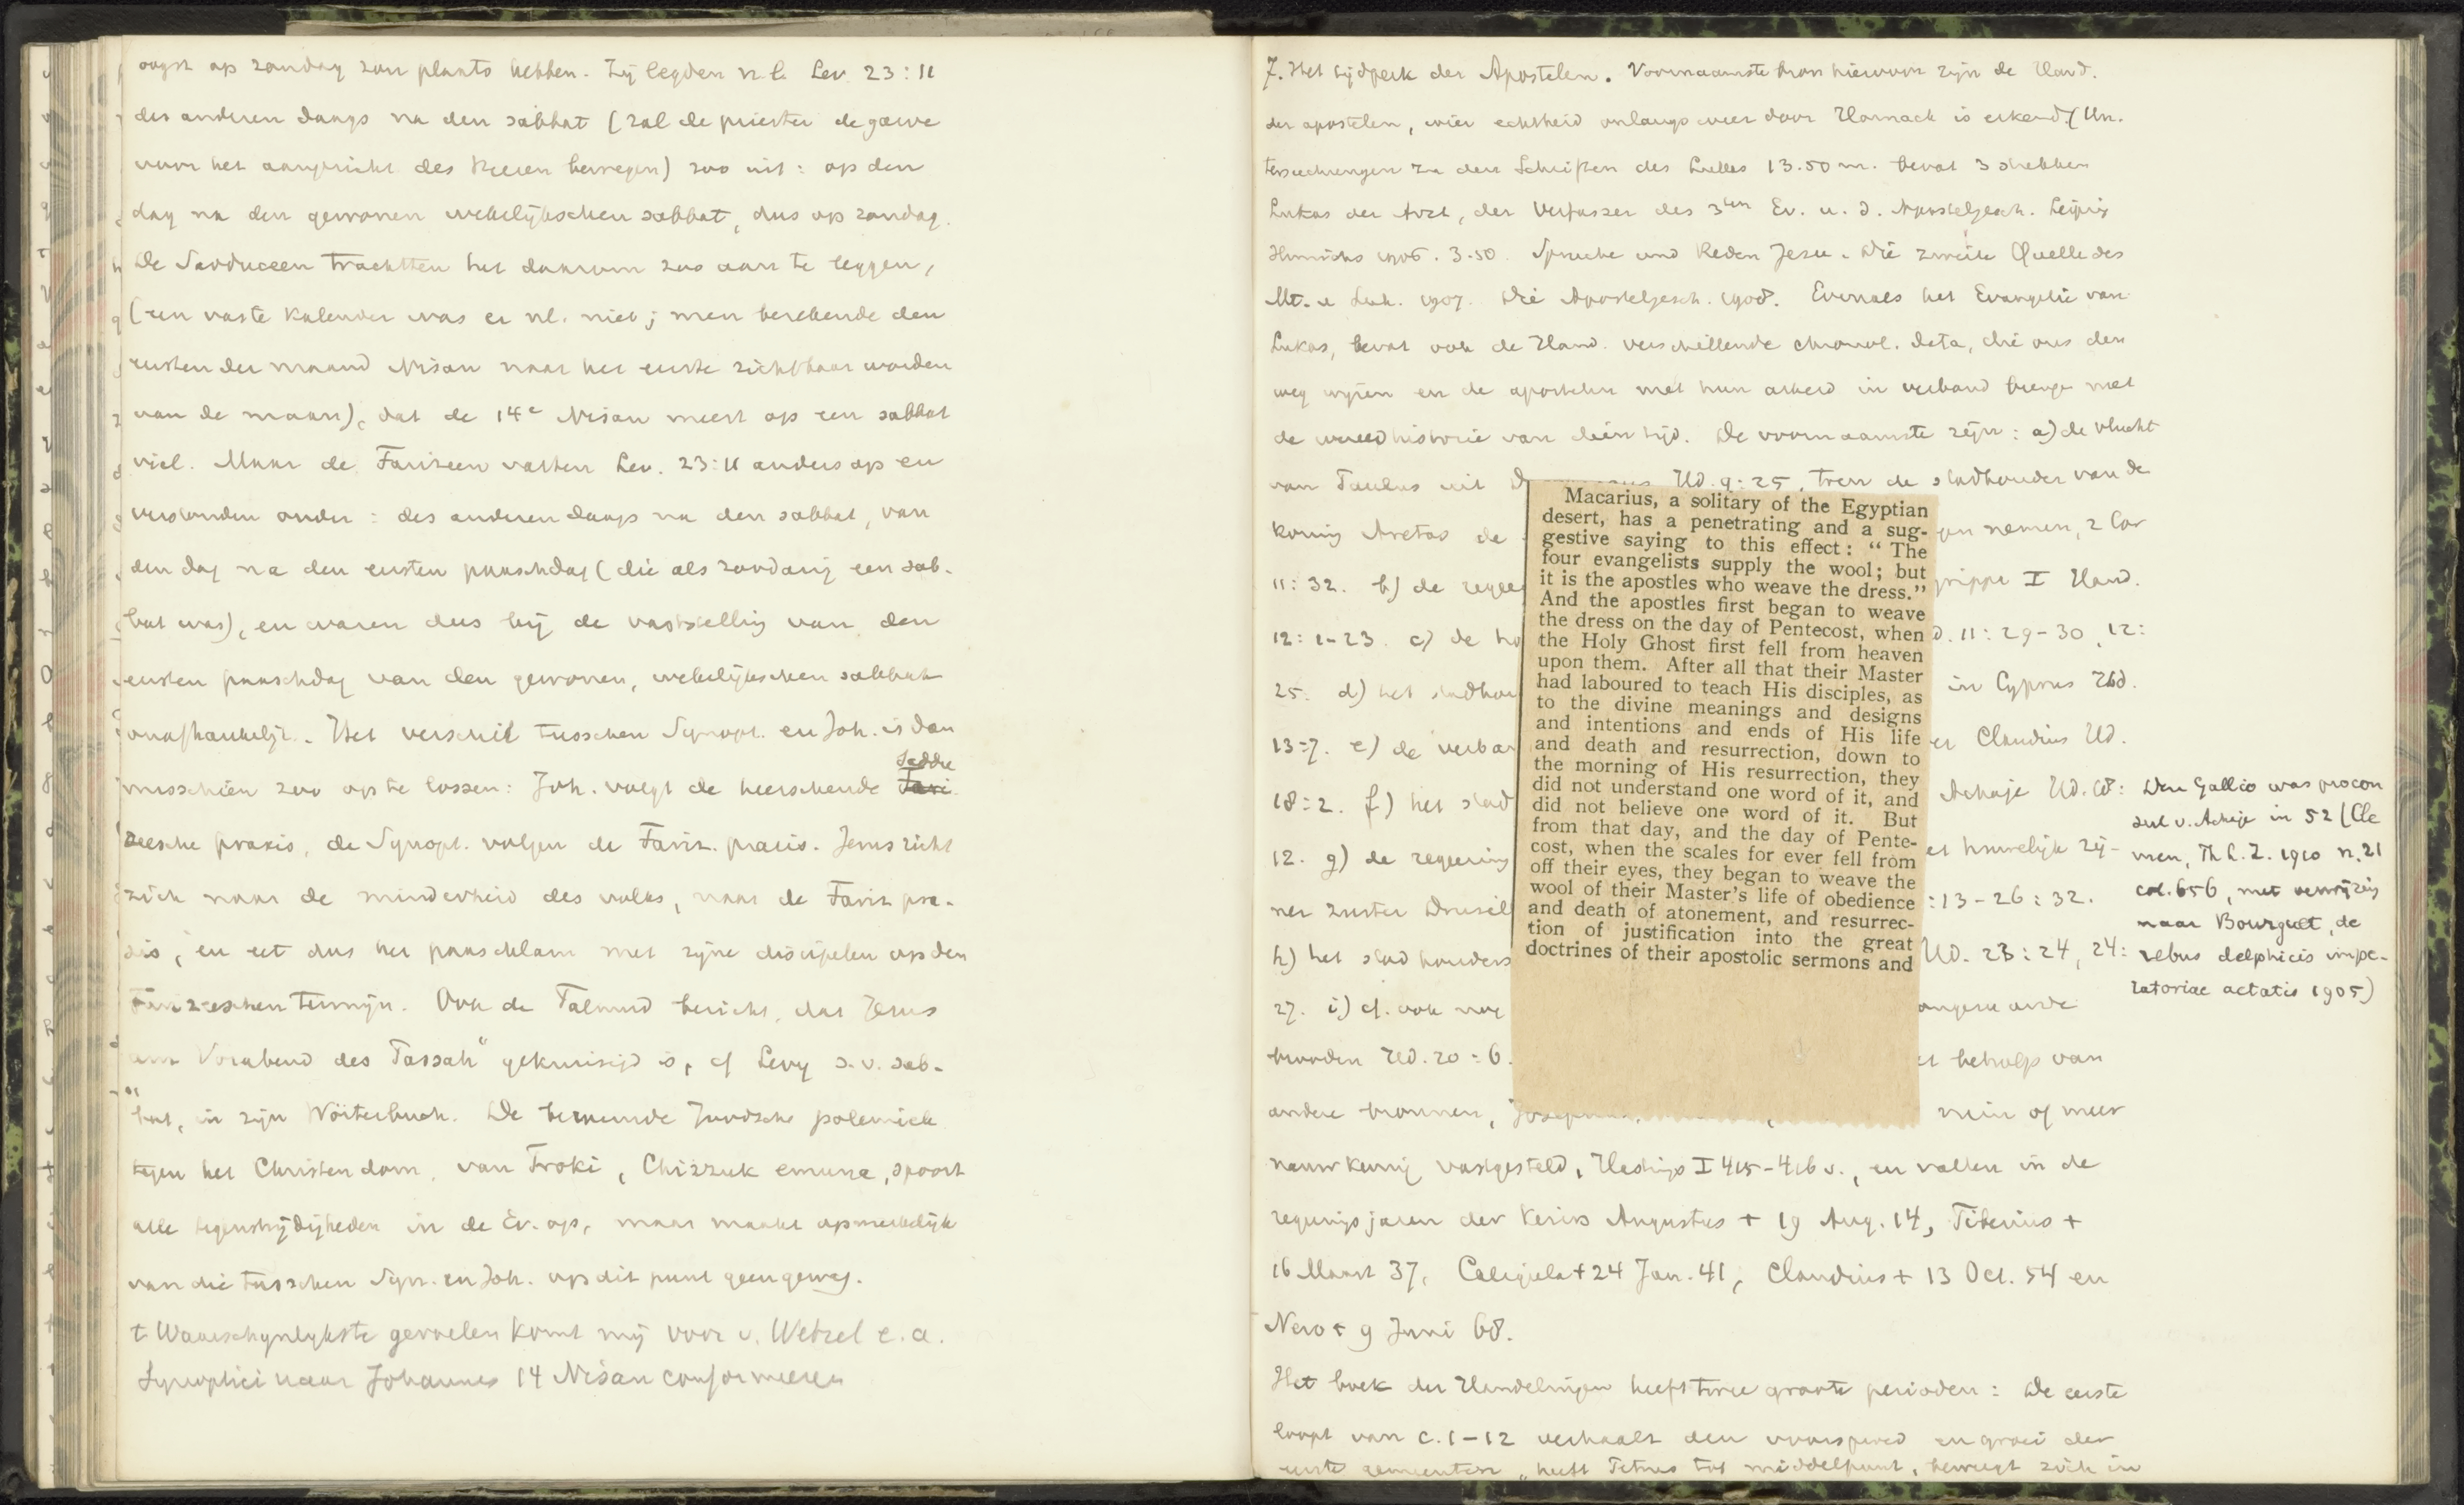 oogst op zondag zou plaats hebben. Zij legden n.l. Lev. 23:11
des anderen daags na den sabbat (zal de priester de garve
voor het aangezicht des Heeren bewegen) zoo uit: op den
dag na den gewonen wekelijkschen sabbat, dus op zondag.
De Sadduceen trachtten het daarom zoo aan te leggen,
(een vaste kalender was er nl. niet; men berekende den
eersten der maand Nisan naar het eerste zichtbaar worden
van de maan), dat de 14e Nisan meest op een sabbat
viel. Maar de Farizeen vatten Lev. 23:11 anders op en
verstonden onder: des anderen daags na den sabbat, van
den dag na den eersten paaschdag (die als zoodanig een sab-
bat was), en waren dus bij de vaststelling van den
eersten paaschdag van den gewonen, wekelijkschen sabbat
onafhankelijk. Het verschil tusschen Synopt. en Joh. is dan
Saddu
misschien zoo op te lossen: Joh. volgt de heerschende Fari
zeesche praxis, de Synopt. volgen de Fariz. praxis. Jezus richt
zich naar de minderheid des volks, naar de Fariz. pra-
xis, en eet dus het paaschlam met zijne discipelen op den
Farizeeschen termijn. Ook de Talmud bericht, dat Jezus
am Vorabend des Passah" gekruisigd is, cf Levy s.v. sab-
bat, in zijn Wörterbuch. De beroemde Joodsche polemiek
tegen het Christendom, van Troki, Chizzuk emuna, spoort
alle tegenstrijdigheden in de Ev. op, maar maakt opmerkelijk
van die tusschen Syn. en Joh. op dit punt geen gewag.
't Waarschynlykste gevoelen komt mij voor v. Wetzel e.a.
Synoptici naar Johannes 14 Nisan conformeeren
7. Het tijdperk der Apostelen. Voornaamste bron hiervoor zijn de Hand.
der apostelen, wier echtheid onlangs weer door Harnack is erkend (Un-
tersuchungen zu den Schriften des Lukas 13.50 m. bevat 3 stukken
Lukas der Arzt, der Verfasser des 3ten Ev. u. d. Apostelgesch. Leipzig
Hinrichs 1906. 3.50. Sprüche und Reden Jesu. Die zweite Quelle des
Mt. u Luk. 1907. Die Apostelgesch. 1908. Evenals het Evangelie van
Lukas, bevat ook de Hand. verschillende chronol. data, die ons den
weg wijzen en de apostelen met hun arbeid in verband brengen met
de wereldhistorie van dien tijd. De voornaamste zijn: a) de vlucht
van Paulus uit Hd. 9:25, toen de stadhouder van de
koning Aretas de nemen, 2 Cor
11:32. b) de I Hand.
12:1-23. c) de 11:29-30, 12:
25. d) het in Cyprus Hd.
13:7. e) de Claudius Hd.
18:2. f) het Achaje Hd. 18:
12. g) de regeering huwelijk zij-
ner zuster :13-26:32.
h) het Hd. 23:24, 24:
27. i) cf. ook nog
brooden Hd. 20:6. behulp van
andere bronnen, min of meer
nauwkeurig vastgesteld, Hastings I 415-416 v., en vallen in de
regeringsjaren der keizers Augustus + 19 Aug. 14, Tiberius +
16 Maart 37, Caligula + 24 Jan. 41, Claudius + 13 Oct. 54 en
Nero + 9 Juni 68.
Het boek der Handelingen heeft twee groote perioden: De eerste
loopt van c. 1-12 verhaalt den voorspoed en groei der
eerste gemeenten, heeft Petrus tot middelpunt, beweegt zich in
Macarius, a solitary of the Egyptian
desert, has a penetrating and a sug-
gestive saying to this effect: "The
four evangelists supply the wool; but
it is the apostles who weave the dress."
And the apostles first began to weave
the dress on the day of Pentecost, when
the Holy Ghost first fell from heaven
upon them. After all that their Master
had laboured to teach His disciples, as
to the divine meanings and designs
and intentions and ends of His life
and death and resurrection, down to
the morning of His resurrection, they
did not understand one word of it, and
did not believe one word of it. But
from that day, and the day of Pente-
cost, when the scales for ever fell from
off their eyes, they began to weave the
wool of their Master's life of obedience
and death of atonement, and resurrec-
tion of justification into the great
doctrines of their apostolic sermons and
Gallio was procon
sul v. Achaje in 52 (Cle
men, Th. L. Z. 1910 n. 21
col. 656, met verwijzing
naar Bourguet, de
rebus delphicis impe-
ratoriae aetatis 1905)